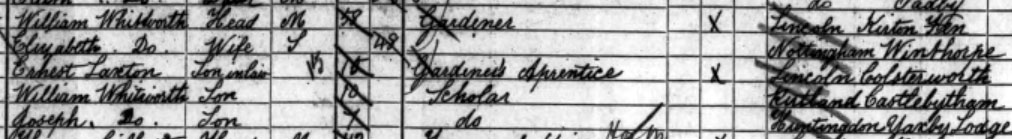 do Yadby
William Whitworth Head M 58 Gardener X Lincoln Kirton Fen
Elizabeth Do. Wife S 48 Nottingham Winthorpe
Ernest Laxton Son inlaw 16 Gardiner's Aprentice X Lincoln Colsterworth
William Whitworth Son 10 Scholar Rutland Castlebytham
Joseph. Do. Son 7 do Huntingdon Yaxby Lodge